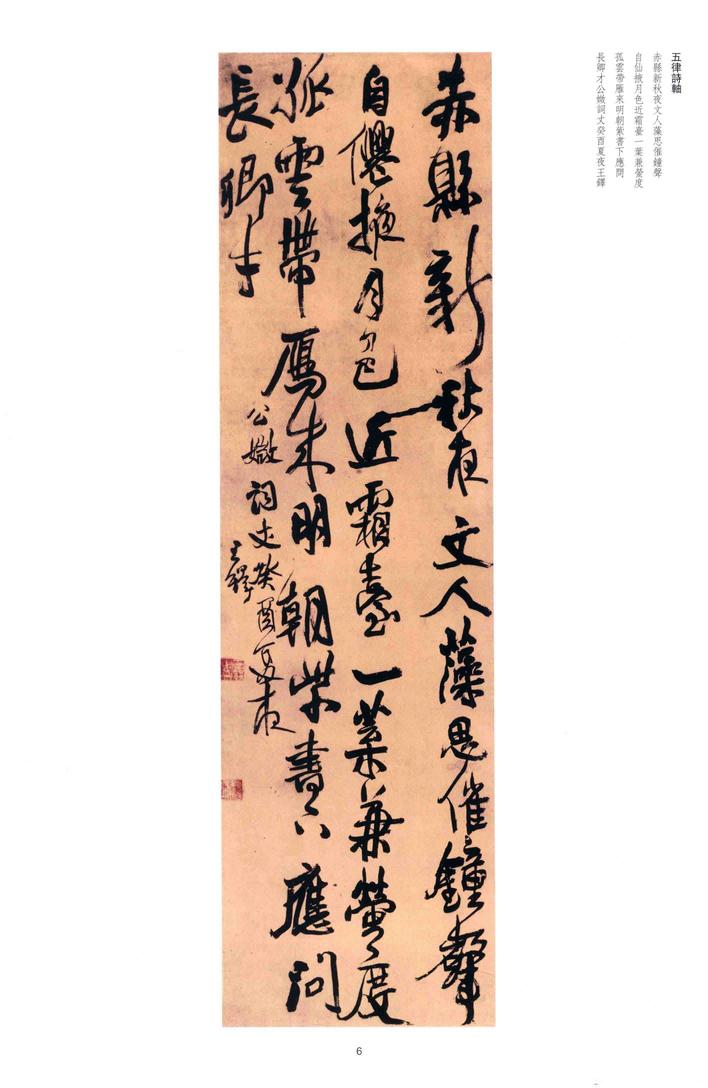 五律詩軸
赤縣新秋夜文人藻思催鐘聲
自仙掖月色近霜臺一葉兼螢度
孤雲帶雁來明朝紫書下應問
長卿才公媺詞丈癸酉夏夜王鐸
赤縣新秋夜文人藻思催鐘聲
自僊掖月色近霜臺一葉兼螢度
孤雲帶鴈來明朝紫書下應問
長卿才
公媺詞丈癸酉夏夜
王鐸
6